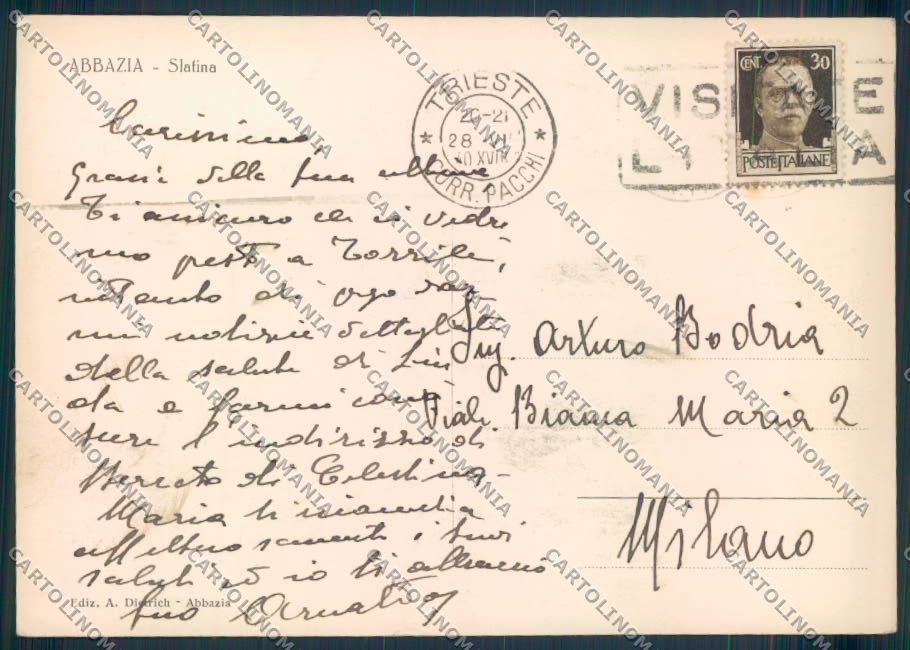 ABBAZIA - Slatina
TRIESTE
20-21
28 VI
40 XVIII
CORR. PACCHI
VIS E
L A
CENT. 30
POSTE ITALIANE
Carissimo,
Grazie della tua ultima
Ti assicuro che ci vedre
mo presto a Torriglia,
intanto di prego dar
mi notizie dettagliate
della salute di Lin
da e farmi cono
scere l'indirizzo di
di Celestina
Maria ti invia
affettuosamente i suoi
saluti, ed io ti abbraccio
tuo
Ing. Arturo Bodria
Viale Bianca Maria 2
Milano
Ediz. A. Dietrich - Abbazia
CARTOLINOMANIA